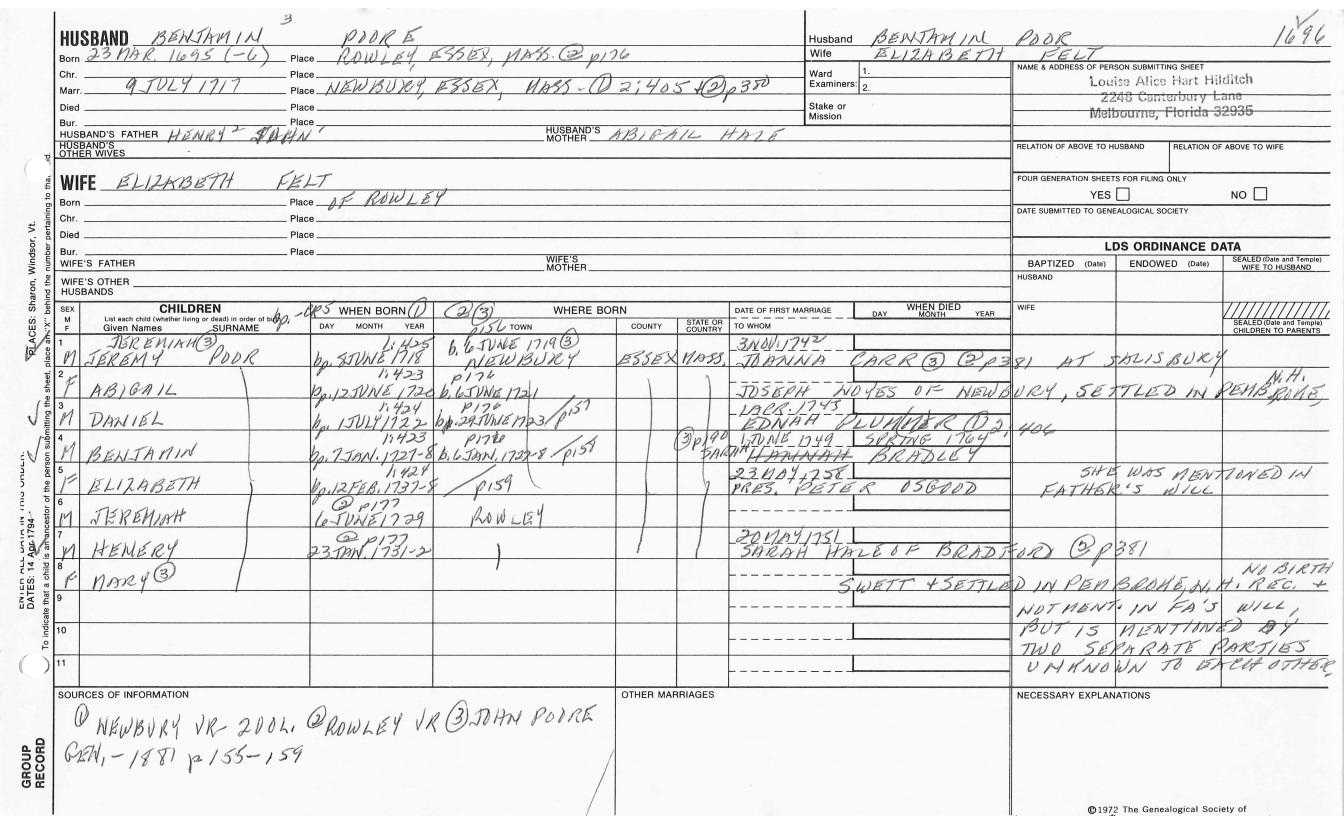 3
HUSBAND BENJAMIN POORE
Born 23 MAR. 1695 (-6) Place ROWLEY, ESSEX, MASS. ② p176
Chr. Place
Marr. 9 JULY 1717 Place NEWBURY, ESSEX, MASS - ① 2:405 + ② p380
Died Place
Bur. Place
HUSBAND'S FATHER HENRY² JOHN¹ HUSBAND'S MOTHER ABIGAIL HALE
HUSBAND'S OTHER WIVES
Husband BENJAMIN POOR 1696
Wife ELIZABETH FELT
Ward Examiners: 1.
2.
Stake or Mission
NAME & ADDRESS OF PERSON SUBMITTING SHEET
Louise Alice Hart Hilditch
2248 Canterbury Lane
Melbourne, Florida 32935
RELATION OF ABOVE TO HUSBAND RELATION OF ABOVE TO WIFE
FOUR GENERATION SHEETS FOR FILING ONLY
YES NO
DATE SUBMITTED TO GENEALOGICAL SOCIETY
WIFE ELIZABETH FELT
Born Place OF ROWLEY
Chr. Place
Died Place
Bur. Place
WIFE'S FATHER WIFE'S MOTHER
WIFE'S OTHER HUSBANDS
LDS ORDINANCE DATA
BAPTIZED (Date) ENDOWED (Date) SEALED (Date and Temple) WIFE TO HUSBAND
HUSBAND
WIFE
SEALED (Date and Temple) CHILDREN TO PARENTS
SEX M F CHILDREN
List each child (whether living or dead) in order of
Given Names SURNAME
bp. - CR5 WHEN BORN ① DAY MONTH YEAR
②③ WHERE BORN p156 TOWN COUNTY STATE OR COUNTRY
DATE OF FIRST MARRIAGE TO WHOM
WHEN DIED DAY MONTH YEAR
1 JEREMIAH ③ 1:425 b. 6 JUNE 1719 ③ 3 NOV. 1742
M JEREMY POOR bp. 8 JUNE 1718 NEWBURY ESSEX MASS. JOANNA CARR ③ ② p381 AT SALISBURY
2 1:423 p176 N.H.
F ABIGAIL bp. 12 JUNE 1720 b. 6 JUNE 1721 JOSEPH NOYES OF NEWBURY, SETTLED IN PEMBROKE,
3 1:424 p176 1 APR. 1745
M DANIEL bp. 1 JULY 1722 bp. 29 JUNE 1723 / p157 EDNAH PLUMMER ① 2:406
4 1:423 p176 ③ p190 1 JUNE 1749 SPRING 1764
M BENJAMIN bp. 7 JAN. 1727-8 b. 6 JAN. 1727-8 / p159 SARAH HANNAH BRADLEY
5 1:424 23 MAY 1758 SHE WAS MENTIONED IN
F ELIZABETH bp. 12 FEB. 1737-8 / p159 PRES. PETER OSGOOD FATHER'S WILL
6 ② p177
M JEREMIAH 6 JUNE 1729 ROWLEY
7 ② p177 20 MAY 1751
M HENERY 23 JAN. 1731-2 SARAH HALE OF BRADFORD ② p381
8 NO BIRTH
F MARY ③ SWETT + SETTLED IN PEMBROKE, N.H. REC. +
9 NOT MENT. IN FA'S WILL,
10 BUT IS MENTIONED BY
TWO SEPARATE PARTIES
11 UNKNOWN TO EACH OTHER
SOURCES OF INFORMATION
① NEWBURY VR - 2 VOL. ② ROWLEY VR ③ JOHN POORE
GEN. - 1881 p155-159
OTHER MARRIAGES
NECESSARY EXPLANATIONS
©1972 The Genealogical Society of
PLACES: Sharon, Windsor, Vt.
ENTER ALL DATA IN THIS ORDER:
DATES: 14 Apr 1794
To indicate that a child is an ancestor of the person submitting the sheet, place an "X" behind the number pertaining to tha
GROUP RECORD